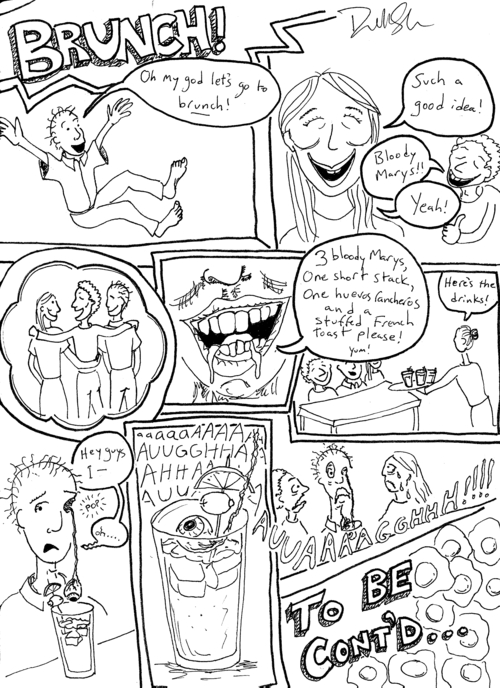 BRUNCH!
Oh my god let's go to
brunch!
Such a
good idea!
Bloody
Marys!!
Yeah!
3 bloody Marys,
One short stack,
One huevos rancheros
and a
stuffed French
toast please!
yum!
Here's the
drinks!
Hey guys
I—
POP
oh...
aaaaaAAAAA
AUUGGHHHA
AHHAA
AUU
AUUAARAGGHHH!!!!
TO BE
CONT'D...